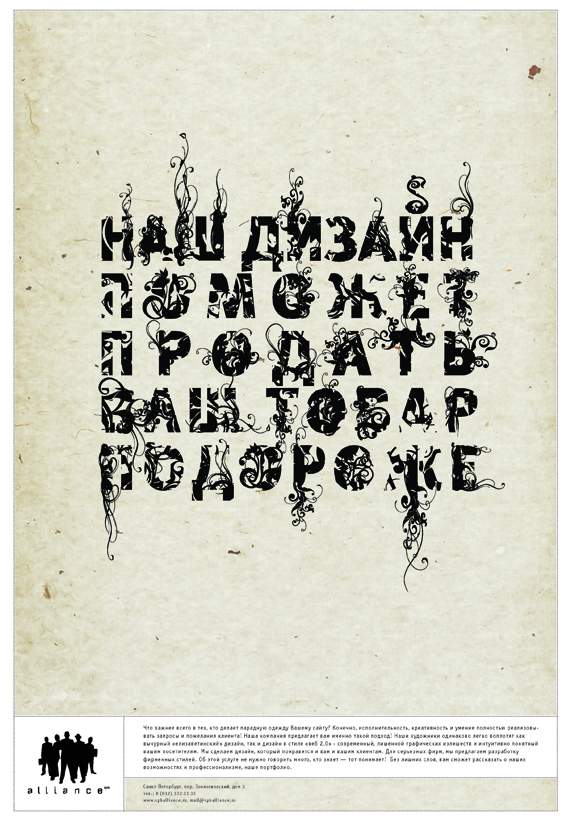 НАШ ДИЗАЙН
ПОМОЖЕТ
ПРОДАТЬ
ВАШ ТОВАР
ПОДОРОЖЕ
Что важнее всего в тех, кто делает парадную одежду Вашему сайту? Конечно, исполнительность, креативность и умение полностью реализовы-
вать запросы и пожелания клиента! Наша компания предлагает вам именно такой подход! Наши художники одинаково легко воплотят как
вычурный «елизаветинский» дизайн, так и дизайн в стиле «веб 2.0» - современный, лишенной графических излишеств и интуитивно понятный
вашим посетителям. Мы сделаем дизайн, который понравится и вам и вашим клиентам. Для серьезных фирм, мы предлагаем разработку
фирменных стилей. Об этой услуге не нужно говорить много, кто знает — тот понимает! Без лишних слов, вам сможет рассказать о наших
возможностях и профессионализме, наше портфолио.
alliance
Санкт Петербург, пер.
тел.: 8 (812) 333 13 33
www.spballiance.ru, mail@spballiance.ru